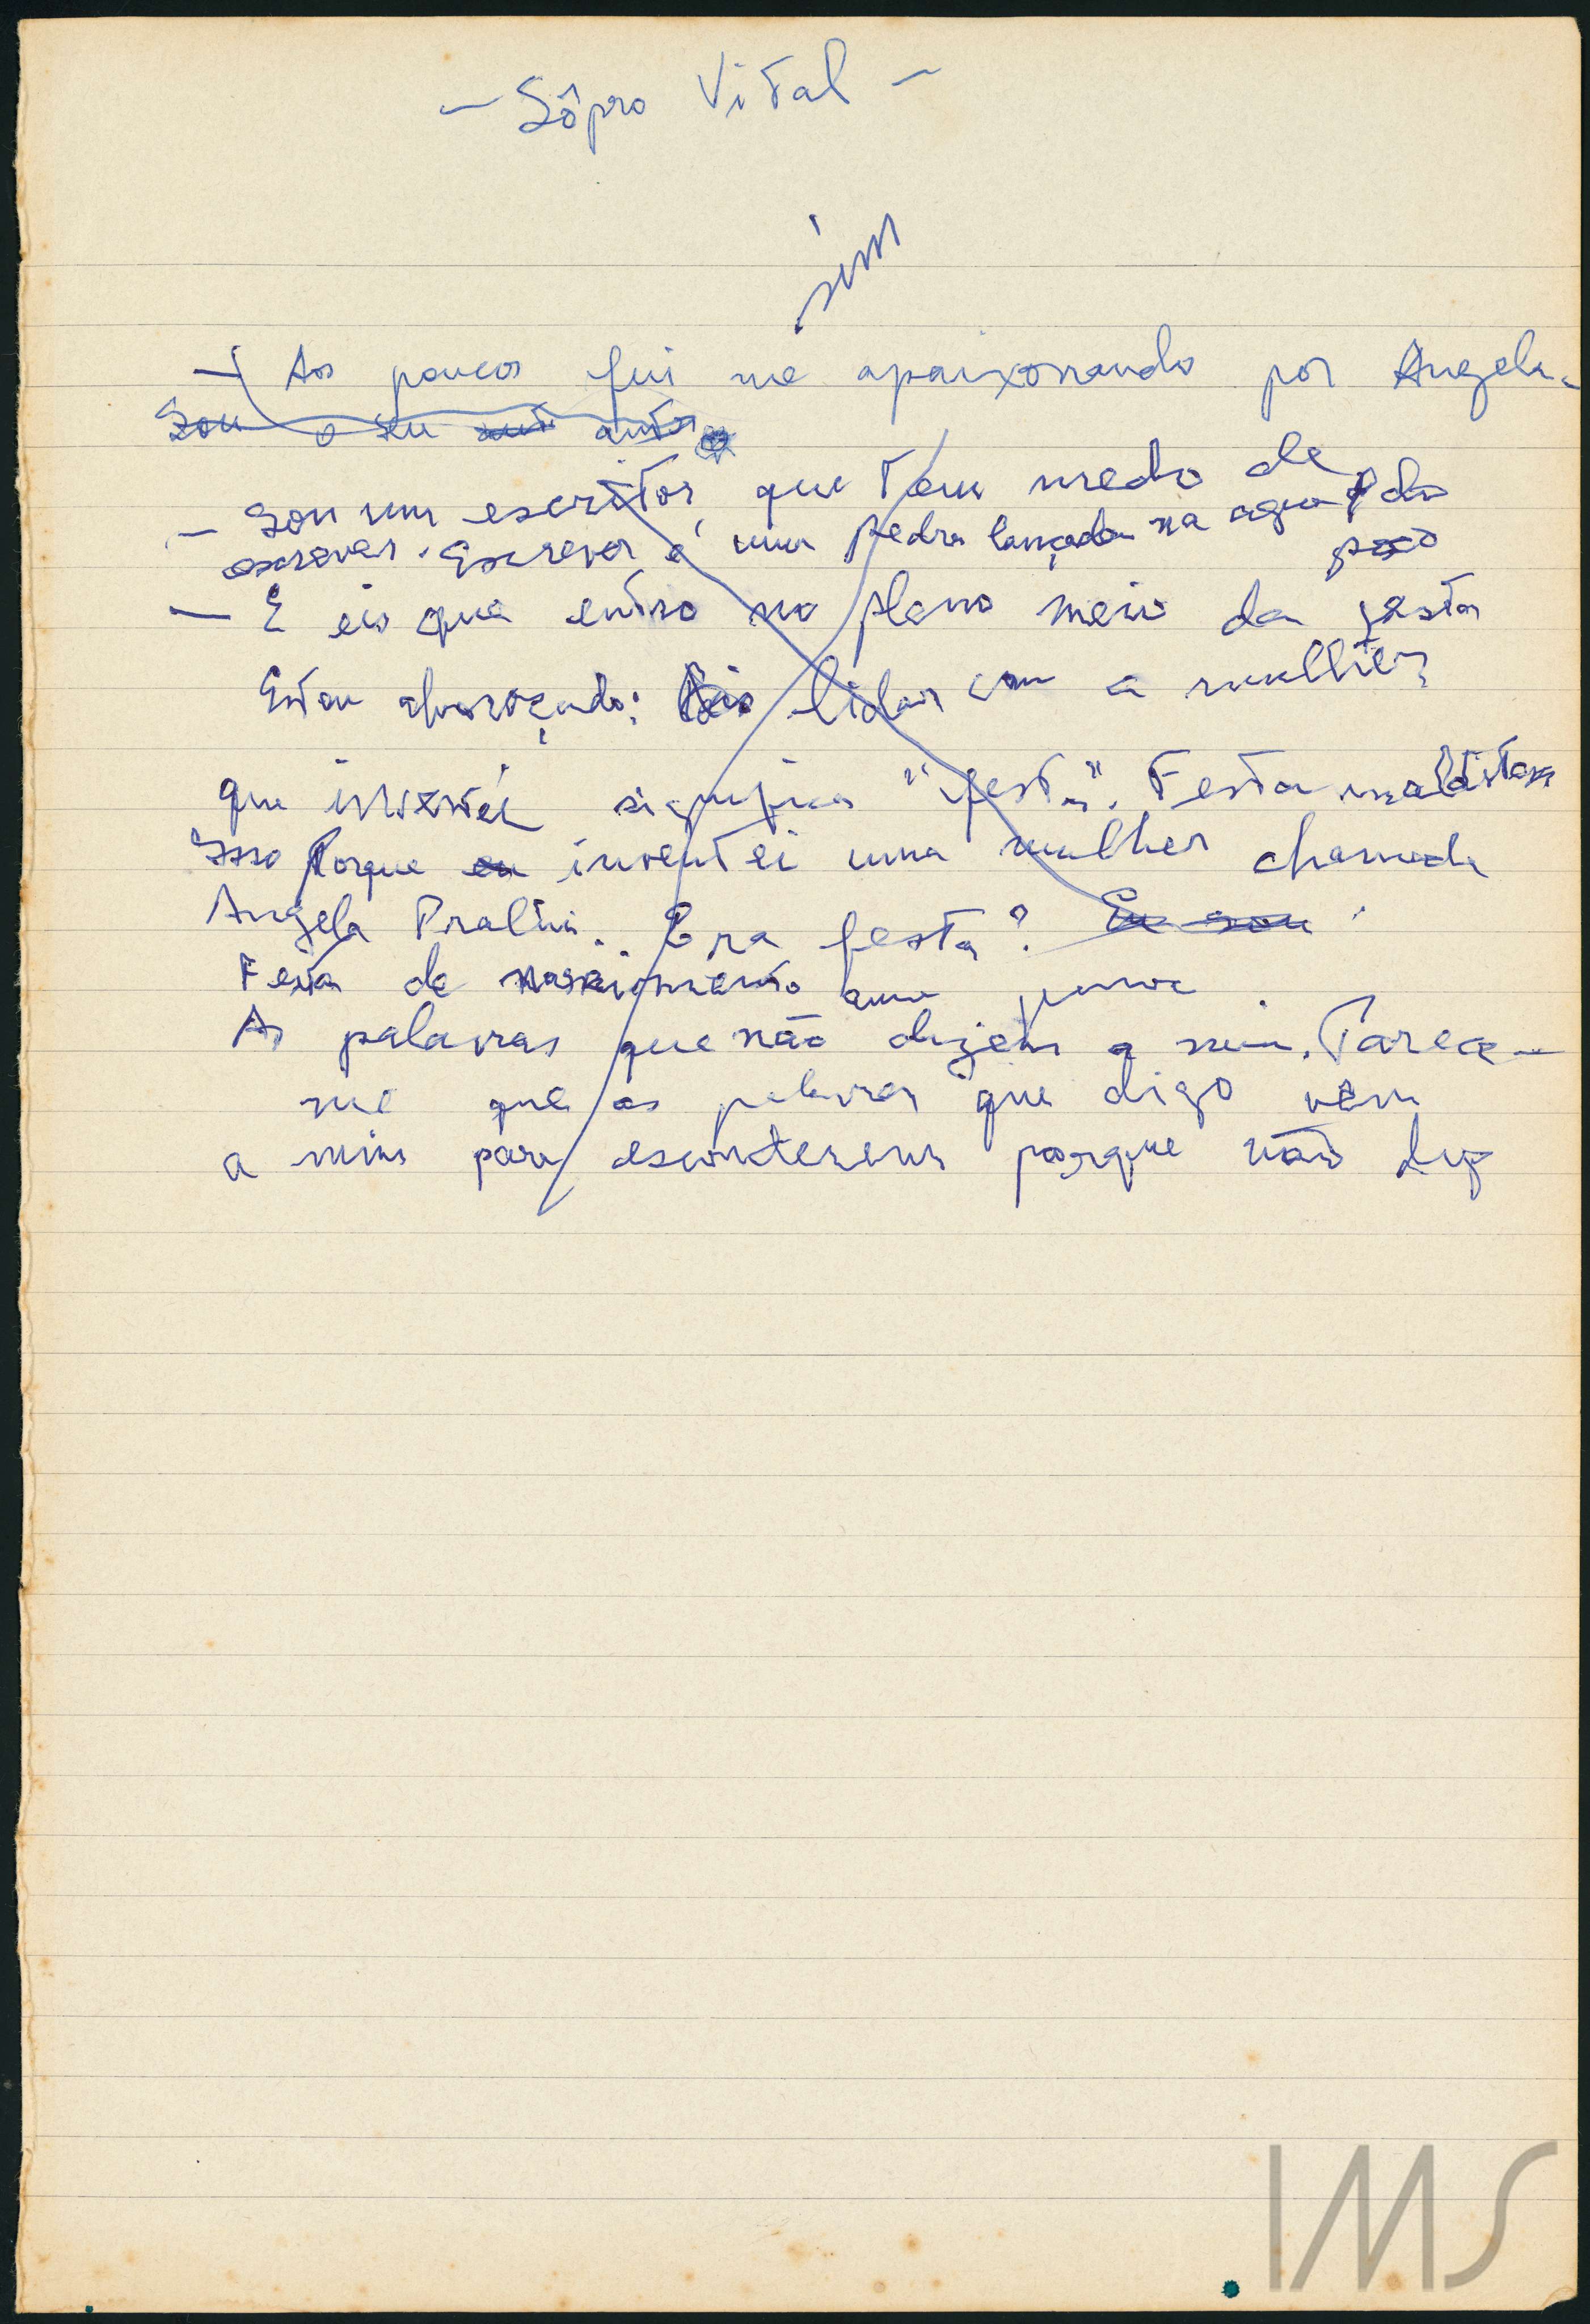 — Sôpro Vital —
sim
— Aos poucos fui me apaixonando por Angela.
Sou o seu aut autor
— Sou um escritor, que tem medo de
escrever. Escrever é uma pedra lançada na agua do
poço
— E eis que entro no pleno meio da festa
Estou alvoroçado: lidar com a mulher
que inventei significa "festa". Festa maldita
Isso Porque eu inventei uma mulher chamada
Angela Pralini. Era festa? Eu sou
Festa de nascimento
As palavras que não dizem a mim. Parece-
me que as palavras que digo vem
a mim para esconderem porque não
IMS